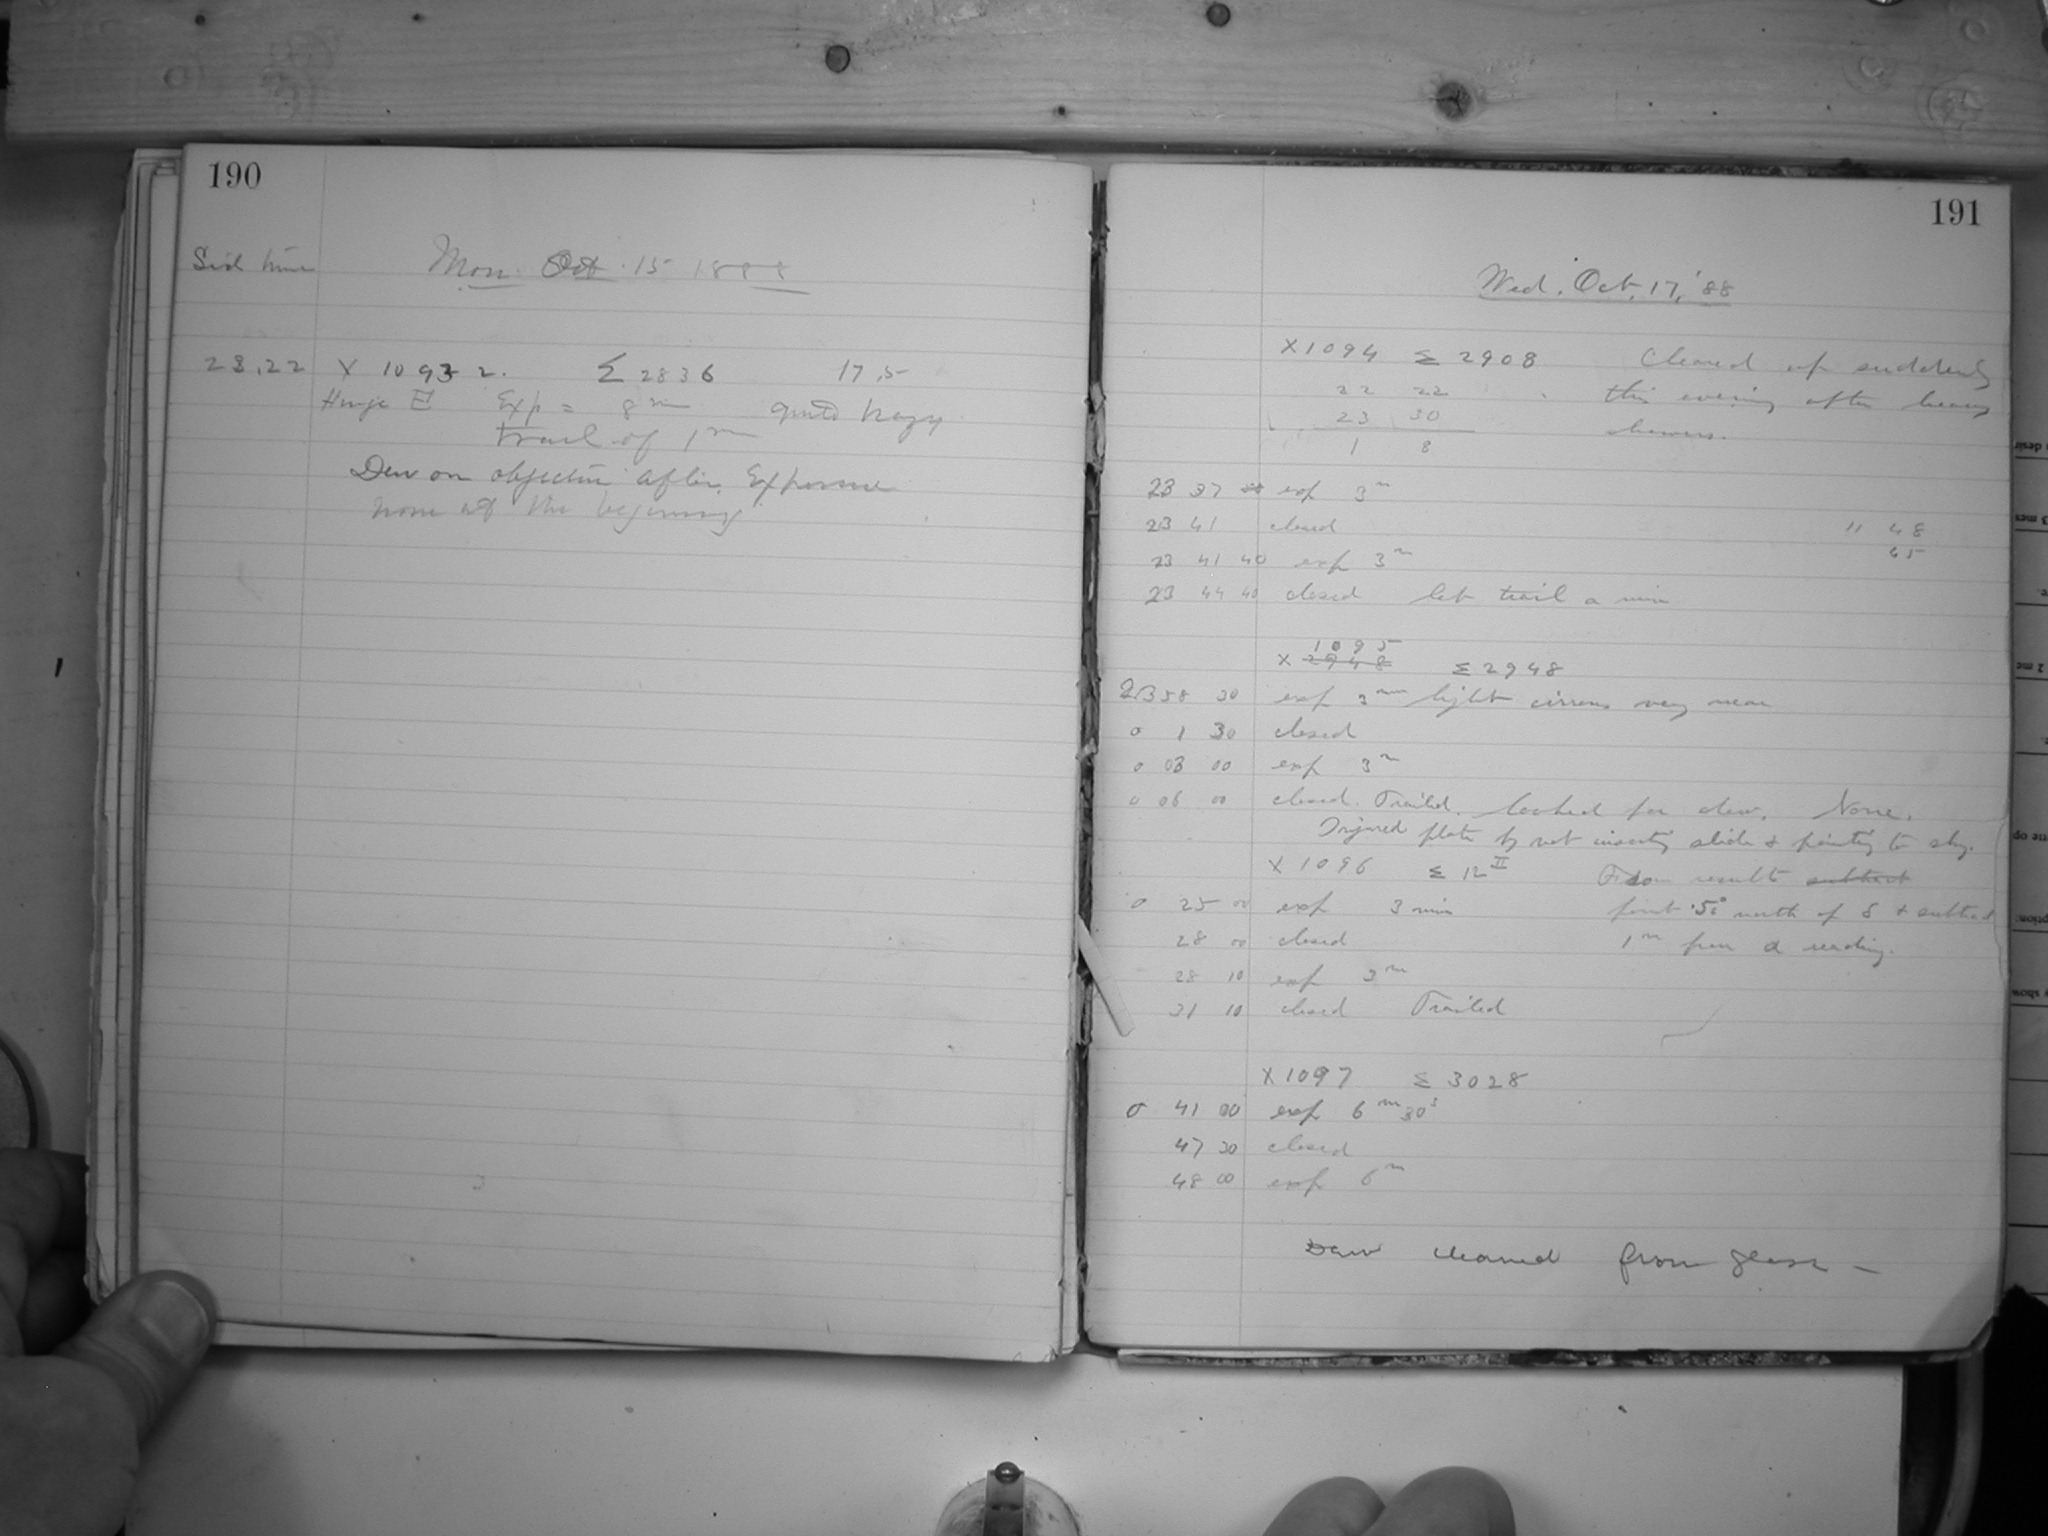 190
Sid time Mon. Oct. 15 1888
28.22 X 1093 2. Σ 2836 17.5
Hinge E Exp = 8m quite hazy
trail of 1m
Dew on objective after Exposure
none at the beginning
191
Wed. Oct. 17, '88
X1094 Σ 2908 Cleared up suddenly
22 22 this evening after heavy
23 30 showers.
1 8
23 37 exp 3m
23 41 closed 11 48
45
23 41 40 exp 3m
23 44 40 closed let trail a min
1095
X 2948 Σ 2948
23 58 30 exp 3m light cirrous very near
0 1 30 closed
0 03 00 exp 3m
0 06 00 closed. Trailed. looked for dew. None.
Injured plate by not inserting slide & pointing to sky.
X 1096 Σ 12 II From results subtract
0 25 00 exp 3 min point .5° north of δ & subtract
28 00 closed 1m from α reading.
28 10 exp 3m
31 10 closed Trailed
X1097 Σ 3028
0 41 00 exp 6m 30s
47 30 closed
48 00 exp 6m
Dew cleaned from glass —